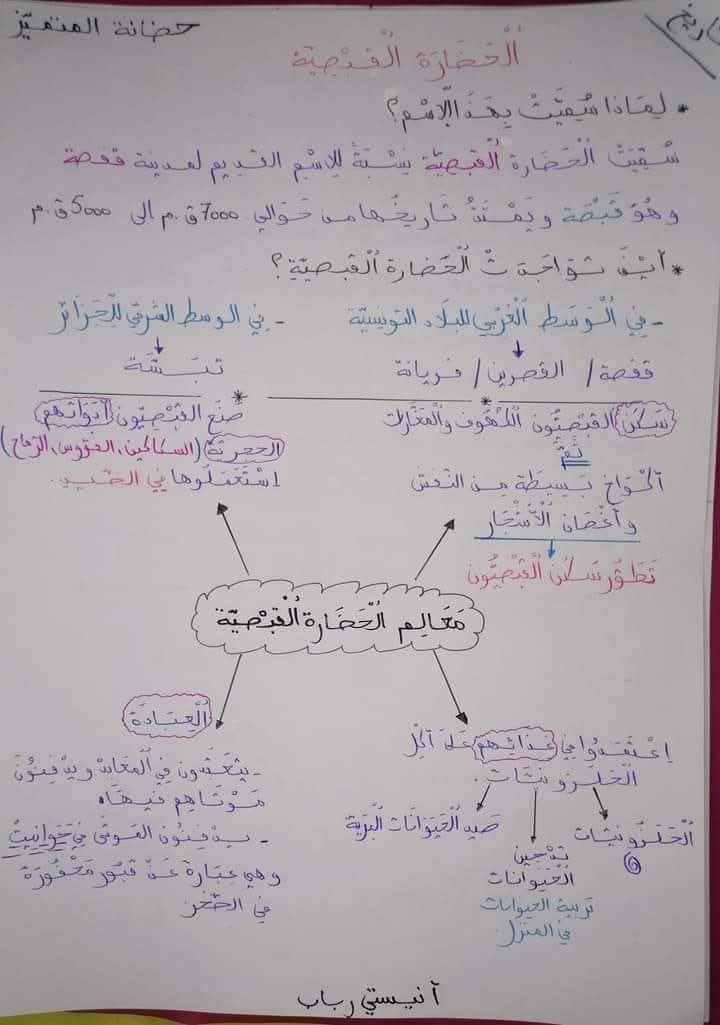 تاريخ
حضانة المتميّز
الْحَضَارَةُ الْقَبْصِيَّة
* لِمَاذَا سُمِّيَتْ بِهَذَا الْاِسْم؟
سُمِّيَتْ الْحَضَارة القبصيّة نِسْبَةً لِلإسْمِ القديم لمدينة قفصة
وَهُوَ قَبْصَة وَيَمْتَدُّ تَاريخُهَا من حَوَالي 7000 ق.م الى 5000 ق.م
* أَيْنَ تَوَاجَدَتْ الْحَضَارة الْقَبصيّة؟
- فِي الْوَسَط الْغَرْبِي للبلاد التونسيّة
- فِي الوسط الشرقي للْجَزَائر
قفصة / القصرين / فريانة
تبسّة
سَكَنَ القبصيّون الكهوف والمغارات
ثمّ
أكْوَاخ بَسِيطَة مِنَ القش
وأغْصَان الْأَشْجَار
تَطَوُّر سَكَن الْقَبْصِيُّون
صَنَعَ القبصيّون أدَوَاتهم
الحجريّة (السكاكين، الفؤوس، الرّماح)
اسْتَعْمَلُوهَا فِي الصّيد.
مَعَالِم الْحَضَارَة الْقَبْصِيَّة
اِعْتَمَدُوا فِي غذائهم عَلَى أَكْلِ
الْحَلَزُونِيَّات.
الْحَلَزُونيّات
تَدْجين
الْحَيَوَانات
تربية الحيوانات
في المنزل
صَيد الْحَيَوَانَات الْبَرّية
الْعِبَادَة
- يتعبّدون في الْمَعَابد ويدفِنُونَ
مَوْتَاهم فيهَا.
- يدفِنُون الموتَى فِي حَوَانِيتْ
وهي عِبَارَة عَنْ قبُور مَحْفُورَة
فِي الصّخر
أنيستي رباب